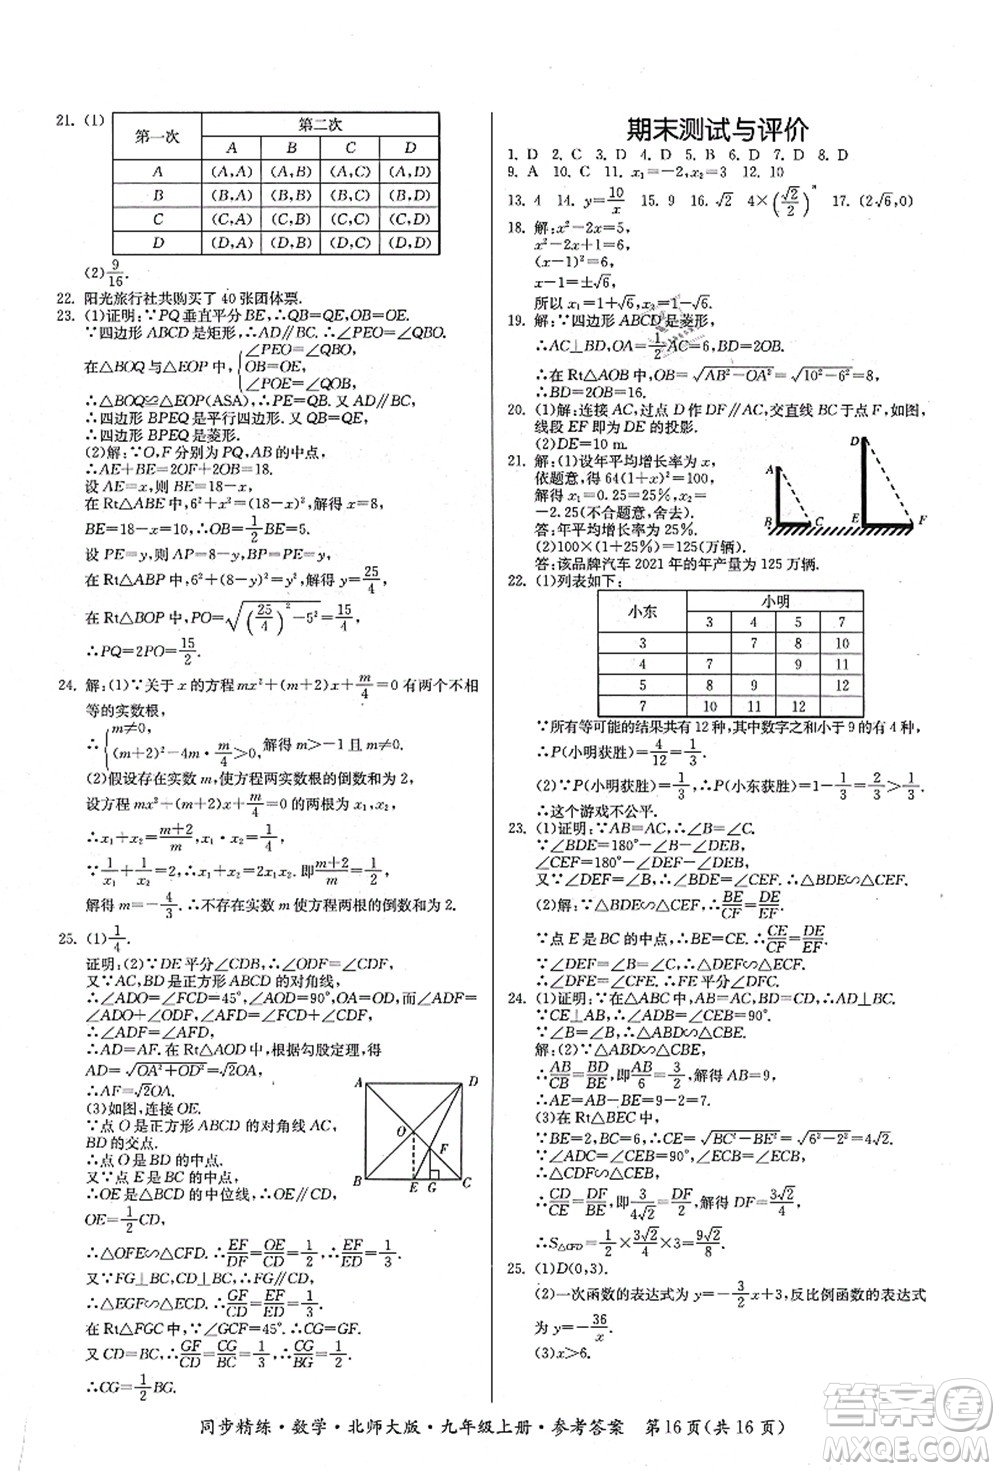 21. (1)
第一次 第二次
A B C D
A (A,A) (A,B) (A,C) (A,D)
B (B,A) (B,B) (B,C) (B,D)
C (C,A) (C,B) (C,C) (C,D)
D (D,A) (D,B) (D,C) (D,D)
(2)9/16.
22. 阳光旅行社共购买了 40 张团体票.
23. (1)证明:∵PQ 垂直平分 BE,∴QB=QE,OB=OE.
∵四边形 ABCD 是矩形,∴AD∥BC.∴∠PEO=∠QBO.
在△BOQ 与△EOP 中,{∠PEO=∠QBO, OB=OE, ∠POE=∠QOB,
∴△BOQ≌△EOP(ASA).∴PE=QB. 又 AD∥BC,
∴四边形 BPEQ 是平行四边形. 又 QB=QE,
∴四边形 BPEQ 是菱形.
(2)解:∵O,F 分别为 PQ,AB 的中点,
∴AE+BE=2OF+2OB=18.
设 AE=x,则 BE=18-x,
在 Rt△ABE 中,6²+x²=(18-x)²,解得 x=8,
BE=18-x=10,∴OB=1/2BE=5.
设 PE=y,则 AP=8-y,BP=PE=y,
在 Rt△ABP 中,6²+(8-y)²=y²,解得 y=25/4,
在 Rt△BOP 中,PO=√((25/4)²-5²)=15/4,
∴PQ=2PO=15/2.
24. 解:(1)∵关于 x 的方程 mx²+(m+2)x+m/4=0 有两个不相
等的实数根,
∴{m≠0, (m+2)²-4m·m/4>0, 解得 m>-1 且 m≠0.
(2)假设存在实数 m,使方程两实数根的倒数和为 2,
设方程 mx²+(m+2)x+m/4=0 的两根为 x₁,x₂,
∴x₁+x₂=-(m+2)/m,x₁·x₂=1/4,
∵1/x₁+1/x₂=2,∴x₁+x₂=2x₁x₂,即-(m+2)/m=1/2,
解得 m=-4/3.∴不存在实数 m 使方程两根的倒数和为 2.
25. (1)1/4.
证明:(2)∵DE 平分∠CDB,∴∠ODF=∠CDF.
又∵AC,BD 是正方形 ABCD 的对角线,
∴∠ADO=∠FCD=45°,∠AOD=90°,OA=OD=∠ADF=
∠DAO+∠ODF,∠AFD=∠FCD+∠CDF,
∴∠ADF=∠AFD,
∴AD=AF. 在 Rt△AOD 中,根据勾股定理,得
AD=√(OA²+OD²)=√2OA.
∴AF=√2OA.
(3)如图,连接 OE.
∵点 O 是正方形 ABCD 的对角线 AC,
BD 的交点,
∴点 O 是 BD 的中点.
又∵点 E 是 BC 的中点,
∴OE 是△BCD 的中位线,∴OE∥CD,
OE=1/2CD,
∴△OFE∽△CFD.∴EF/DF=OE/CD=1/2.∴EF/ED=1/3.
又∵FG⊥BC,CD⊥BC,∴FG∥CD.
∴△EGF∽△ECD.∴GF/CD=EF/ED=1/3.
在 Rt△FGC 中,∵∠GCF=45°.∴CG=GF.
又 CD=BC,∴GF/CD=CG/BC=1/3.∴CG/BG=1/2.
∴CG=1/2BG.
A D O F B E G C
期末测试与评价
1. D 2. C 3. D 4. D 5. B 6. D 7. D 8. D
9. A 10. C 11. x₁=-2,x₂=3 12. 10
13. 4 14. y=10/x 15. 9 16. √2 4×(√2/2)ⁿ 17. (2√6,0)
18. 解:x²-2x=5,
x²-2x+1=6,
(x-1)²=6,
x-1=±√6,
所以 x₁=1+√6,x₂=1-√6.
19. 解:∵四边形 ABCD 是菱形,
∴AC⊥BD,OA=1/2AC=6,BD=2OB.
∴在 Rt△AOB 中,OB=√(AB²-OA²)=√(10²-6²)=8,
∴BD=2OB=16.
20. (1)解:连接 AC,过点 D 作 DF∥AC,交直线 BC 于点 F,如图,
线段 EF 即为 DE 的投影.
(2)DE=10 m.
A B C D E F
21. 解:(1)设年平均增长率为 x,
依题意,得 64(1+x)²=100,
解得 x₁=0.25=25%,x₂=
-2.25(不合题意,舍去).
答:年平均增长率为 25%.
(2)100×(1+25%)=125(万辆).
答:该品牌汽车 2021 年的年产量为 125 万辆.
22. (1)列表如下:
小东 小明
3 4 5 7
3 7 8 10
4 7 9 11
5 8 9 12
7 10 11 12
∵所有等可能的结果共有 12 种,其中数字之和小于 9 的有 4 种,
∴P(小明获胜)=4/12=1/3.
(2)∵P(小明获胜)=1/3,∴P(小东获胜)=1-1/3=2/3.
∴这个游戏不公平.
23. (1)证明:∵AB=AC,∴∠B=∠C.
∵∠BDE=180°-∠B-∠DEB,
∠CEF=180°-∠DEF-∠DEB,
又∵∠DEF=∠B,∴∠BDE=∠CEF.∴△BDE∽△CEF.
(2)解:∵△BDE∽△CEF,∴BE/CF=DE/EF.
∵点 E 是 BC 的中点,∴BE=CE.∴CE/CF=DE/EF.
∵∠DEF=∠B=∠C,∴△DEF∽△ECF.
∴∠DFE=∠CFE.∴FE 平分∠DFC.
24. (1)证明:∵在△ABC 中,AB=AC,BD=CD,∴AD⊥BC.
∵CE⊥AB,∴∠ADB=∠CEB=90°.
∵∠B=∠B,∴△ABD∽△CBE.
解:(2)∵△ABD∽△CBE,
∴AB/CB=BD/BE,即AB/6=3/2,解得 AB=9,
∴AE=AB-BE=9-2=7.
(3)在 Rt△BEC 中,
∵BE=2,BC=6,∴CE=√(BC²-BE²)=√(6²-2²)=4√2.
∵∠ADC=∠BEC=90°,∠DCF=∠ECB,
∴△CDF∽△CEB,
∴CD/CE=DF/BE,即3/(4√2)=DF/2,解得 DF=3√2/4,
∴S△CFD=1/2×3√2/4×3=9√2/8.
25. (1)D(0,3).
(2)一次函数的表达式为 y=-3/2x+3,反比例函数的表达式
为 y=-36/x.
(3)x>6.
同步精练·数学·北师大版·九年级上册·参考答案 第16页(共16页)